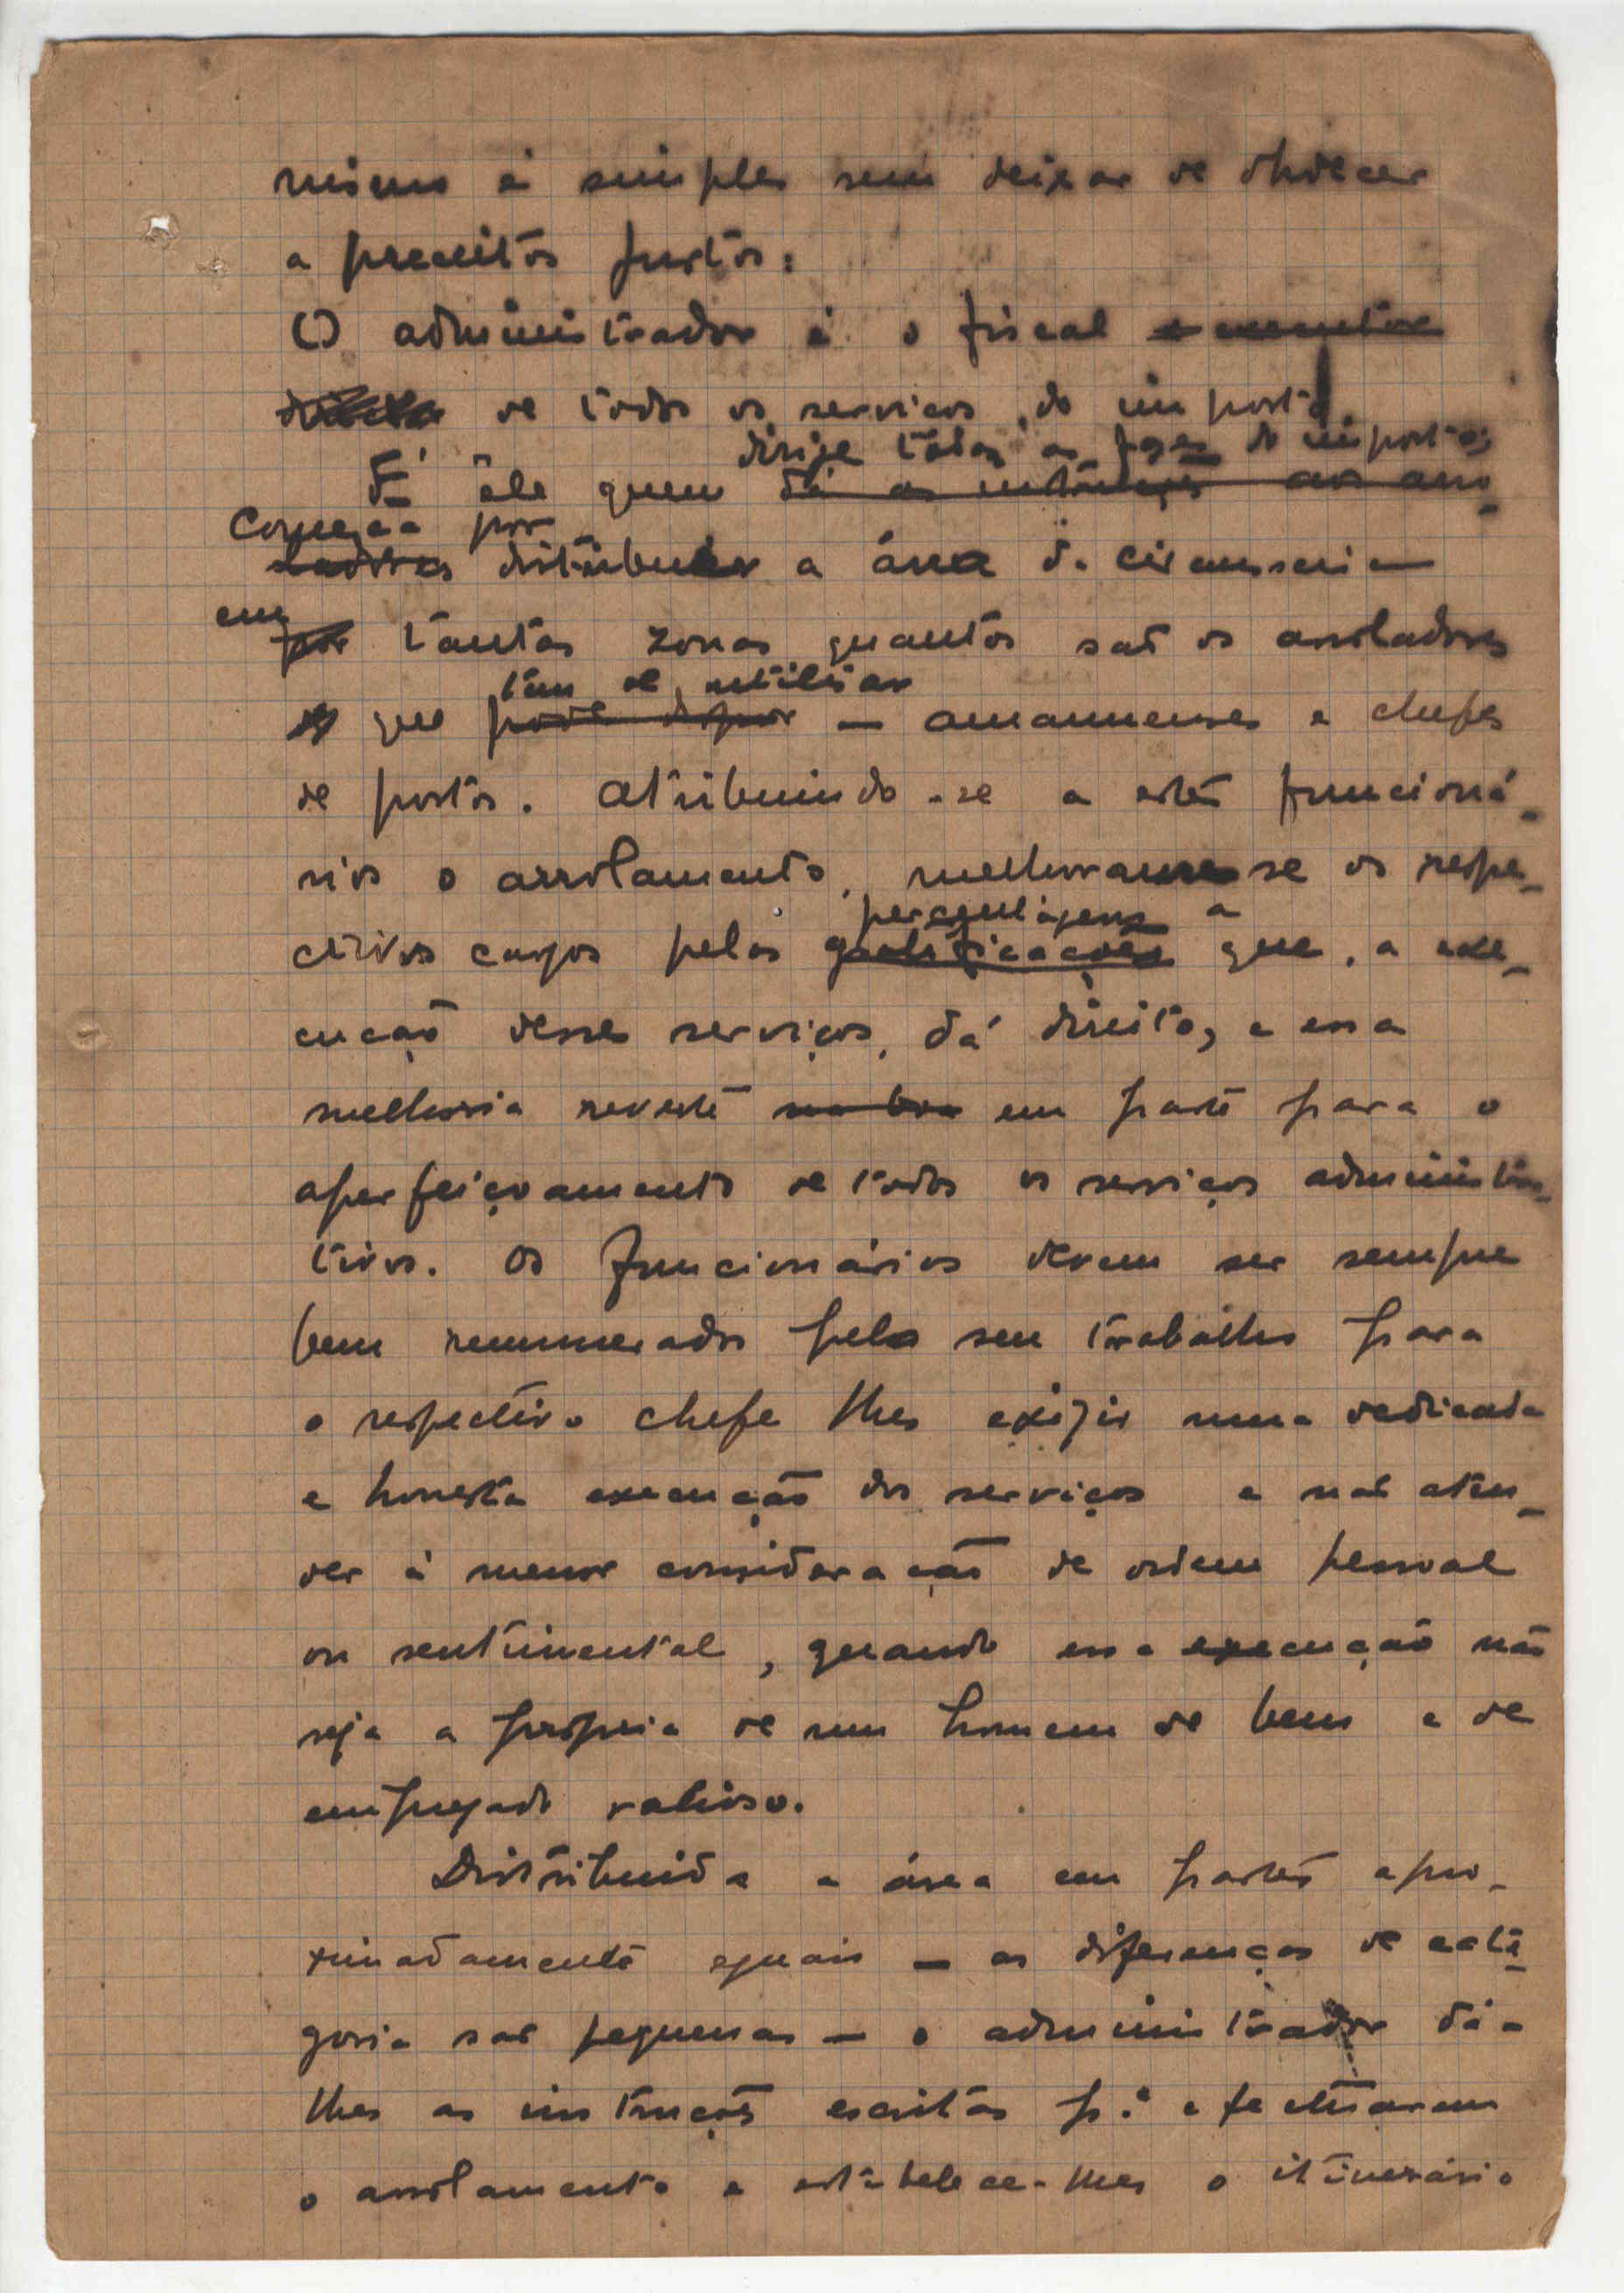 nismo é simples sem deixar de obdecer
a preceitos justos:
O administrador é o fiscal e executor
de todos os serviços do imposto.
dirige tôdas as fases do imposto;
É êle quem dá as instruções aos arro_
Começa por
ladores distribuir a área da circunscri
em
por tantas zonas quantos são os aroladores
tem de utilisar
que pode dispor — amanuenses e chefes
de postos. Atribuindo-se a estes funcioná_
rios o arrolamento, melhoram-se os respe_
percentagens a
ctivos cargos pelas gratificações que, a exe_
cução desses serviços, dá direito, e essa
melhoria reverte em parte para o
aperfeiçoamento de todos os serviços administra_
tivos. Os funcionários devem ser sempre
bem remunerados pelo seu trabalho para
o respectivo chefe lhes exigir uma dedicada
e honesta execução dos serviços e não aten_
der à menor consideração de ordem pessoal
ou sentimental, quando essa execução não
seja a própria de um homem de bem e de
empregado valioso.
Distribuida a área em partes apro_
ximadamente eguais — as diferenças de cate_
goria são pequenas — o administrador dá-
lhes as instruções escritas p.ª efectuarem
o arrolamento e estabelece-lhes o itinerário